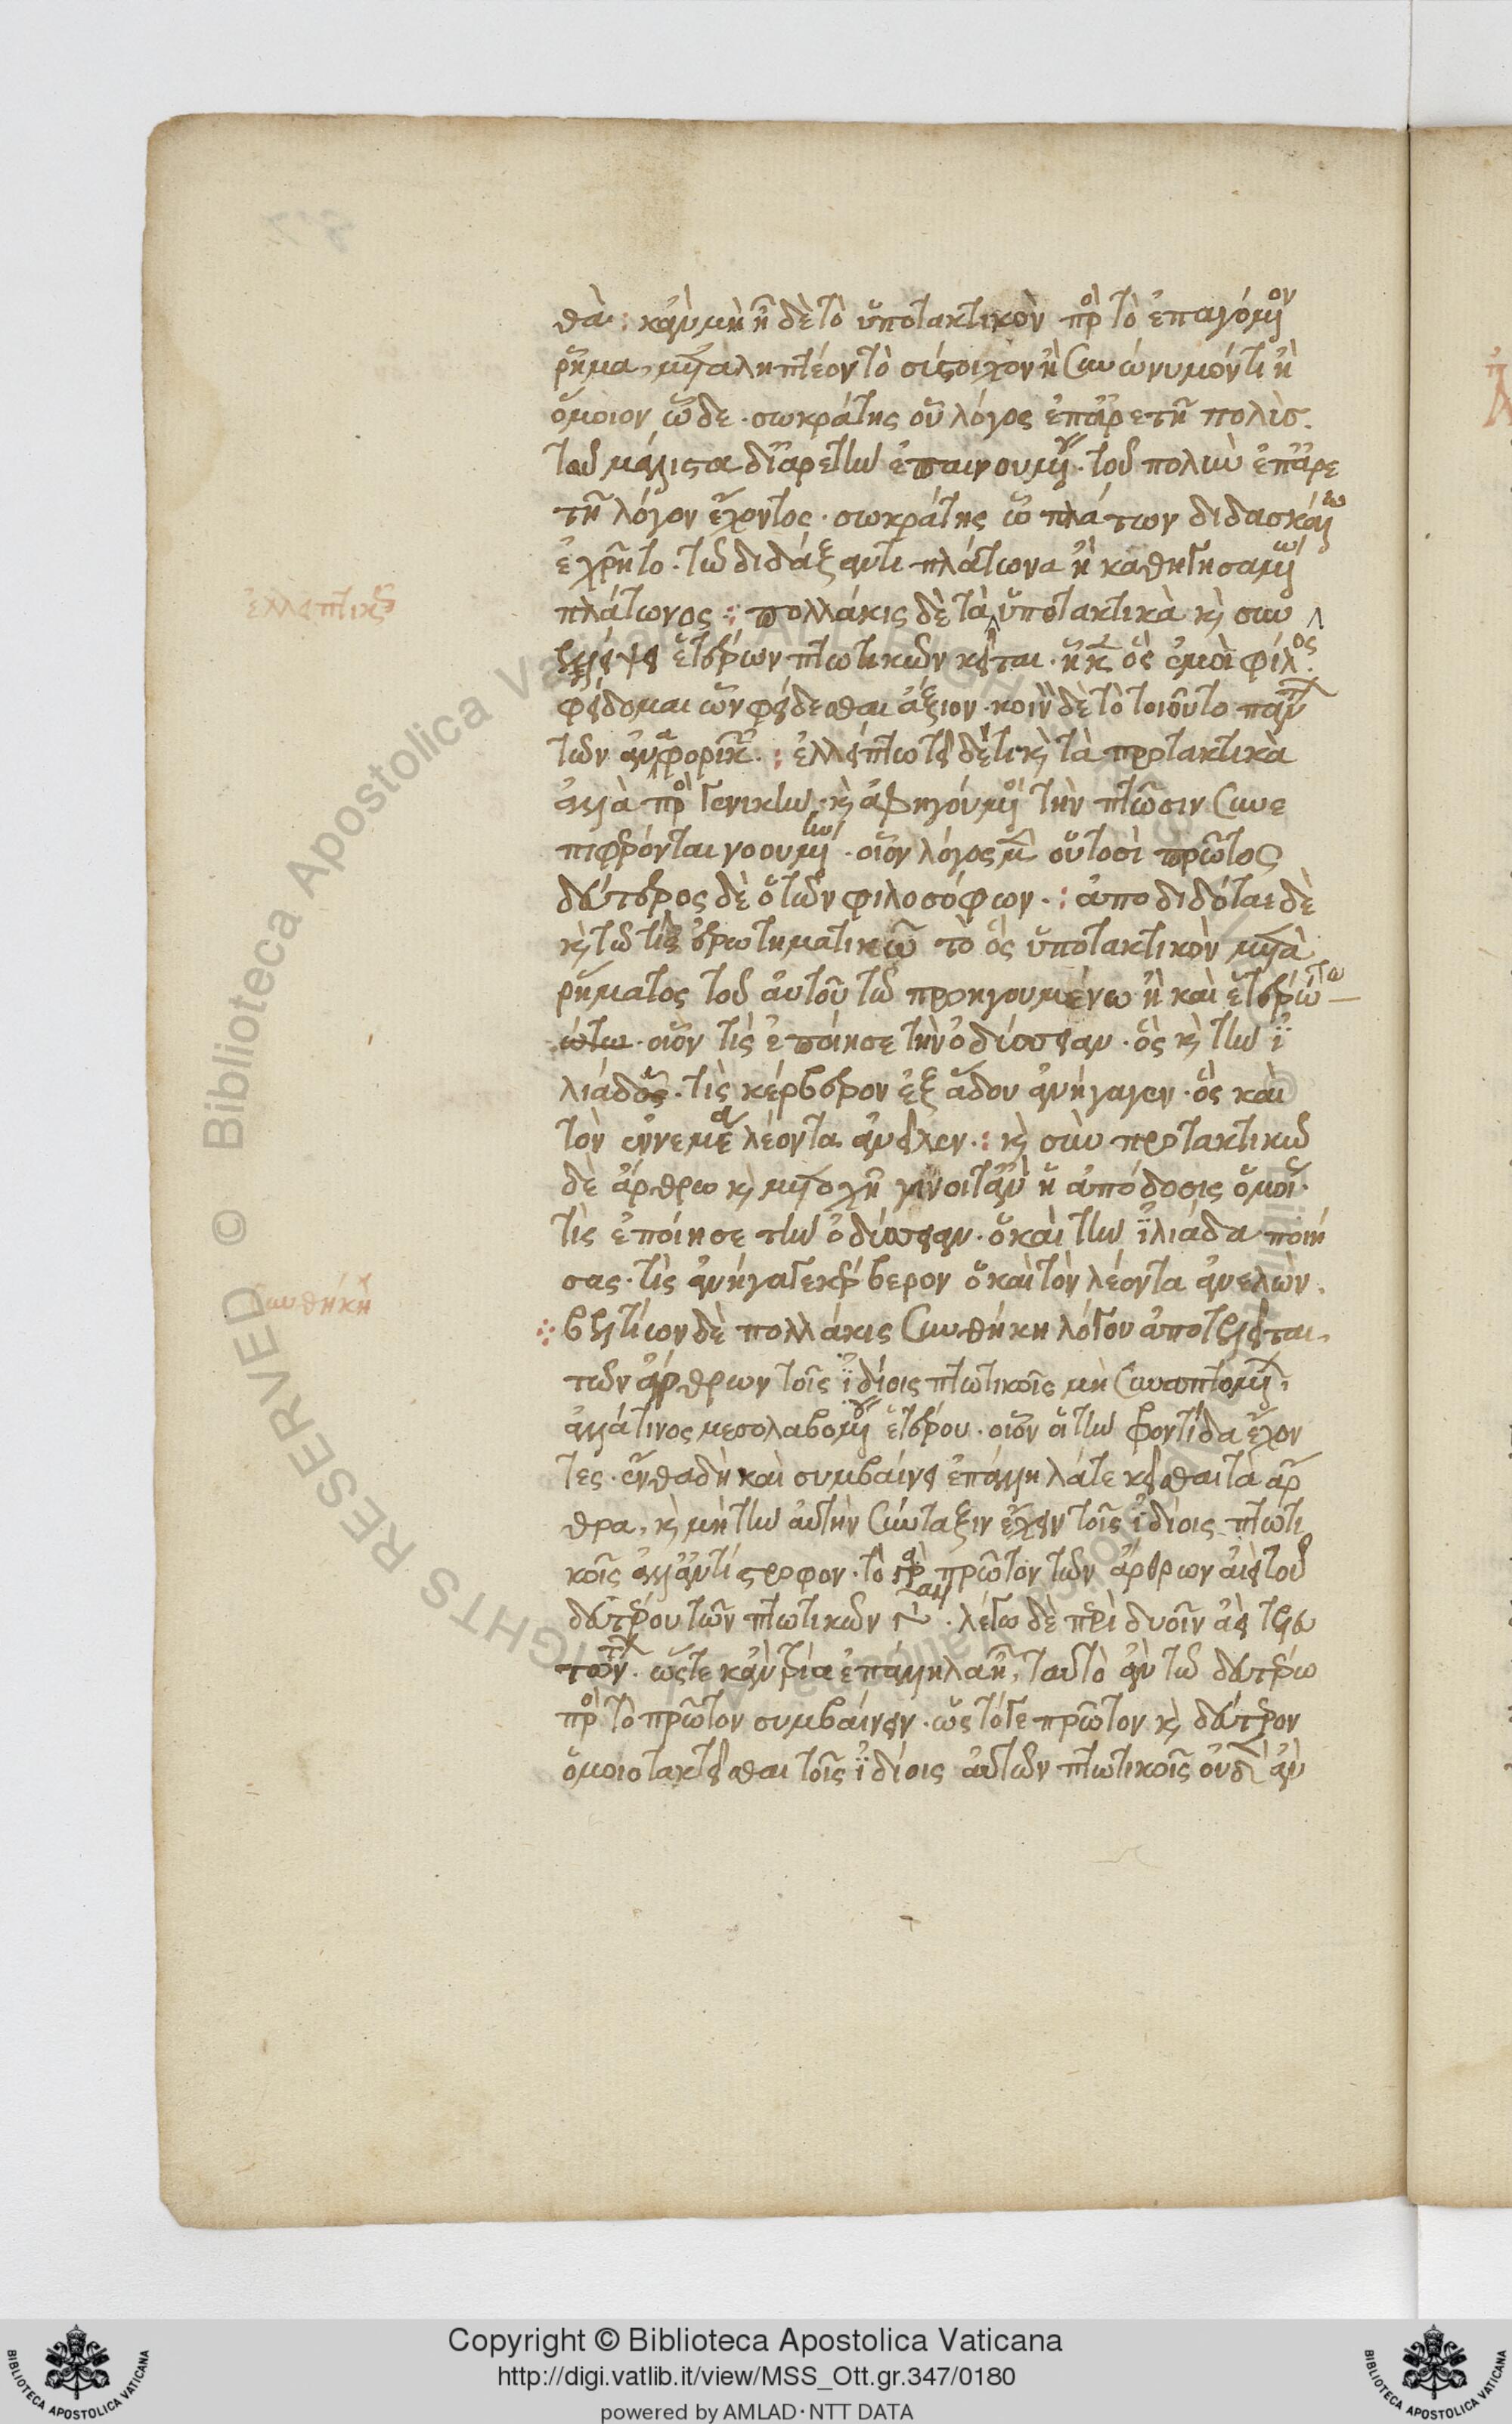 θά : κἂν μὴ ᾖ δὲ τὸ ὑποτακτικὸν πρὸς τὸ ἐπαγόμενον
ῥῆμα, μεταληπτέον τὸ σύστοιχον ἢ συνώνυμόν τι ἢ
ὅμοιον ὧδε. σωκράτης οὗ λόγος ἐπ' ἀρετῇ πολύσ.
τοῦ μάλιστα δι' ἀρετὴν ἐπαινουμένου. τοῦ πολὺν ἐπ' ἀρε
τῇ λόγον ἔχοντος. σωκράτης ᾧ πλάτων διδασκάλῳ
ἐχρῆτο. τῷ διδάξαντι πλάτωνα ἢ καθηγησαμένῳ
ἐλλειπτικῶς
πλάτωνος : πολλάκις δὲ τὰ ὑποτακτικὰ καὶ σὺν
ἐλλείψει ἑτέρων πτωτικῶν κεῖται. ὅς ἐμοὶ φίλος.
φείδομαι ὧν φείδεσθαι ἄξιον. κοινὸν δὲ τὸ τοιοῦτο πάν
των ἀναφορικῶν : ἐλλείπτω τί δέ τι καὶ τὰ προτακτικὰ
ἀλλὰ πρὸς γενικὴν. καὶ ἀφηγούμενοι τὴν πτῶσιν συνε
πιφέρονται νοουμένην. οἷον λόγος μὲν οὑτοσὶ πρῶτος
δεύτερος δὲ ὁ τῶν φιλοσόφων. : ἀποδίδοται δὲ
καὶ τῷ τίς ἐρωτηματικῷ τὸ ὃς ὑποτακτικὸν μετὰ
ῥήματος τοῦ αὐτοῦ τῷ προηγουμένῳ ἢ καὶ ἑτέρῳ
οἷον τίς ἐποίησε τὴν ὀδύσσειαν. ὃς καὶ τὴν ἰ
λιάδος. τίς κέρβερον ἐξ ᾅδου ἀνήγαγεν. ὃς καὶ
τὸν ἐν νεμέᾳ λέοντα ἀνεῖλεν. : καὶ σὺν προτακτικῷ
δὲ ἄρθρῳ καὶ μετοχῇ γίνοιτ' ἂν ἡ ἀπόδοσις ὁμοίως.
τίς ἐποίησε τὴν ὀδύσσειαν. ὁ καὶ τὴν ἰλιάδα ποιή
σας. τίς ἀνήγαγε κέρβερον ὁ καὶ τὸν λέοντα ἀνελών.
συνθήκη
βελτίων δὲ πολλάκις συνθήκη λόγου ἀποτελεῖται.
τῶν ἄρθρων τοῖς ἰδίοις πτωτικοῖς μὴ συναπτομένων,
ἀλλά τινος μεσολαβουμένου ἑτέρου. οἷον οἱ τὴν φροντίδα ἔχον
τες. ἔνθα δὴ καὶ συμβαίνει ἐπάλληλά τε κεῖσθαι τὰ ἄρ
θρα, καὶ μὴ τὴν αὐτὴν σύνταξιν ἔχειν τοῖς ἰδίοις πτωτι
κοῖς ἀλλ' ἀντίστροφον. τὸ γὰρ πρῶτον τῶν ἄρθρων ἀεὶ τοῦ
δευτέρου τῶν πτωτικῶν ἐστι. λέγω δὲ περὶ δυοῖν ἀεὶ τελευ
των. ὥστε κἂν τρία ἐπάλληλα ᾖ, ταυτὸ ἂν τῷ δευτέρῳ
πρὸς τὸ πρῶτον συμβαίνειν. ὡς τό γε πρῶτον καὶ δεύτερον
ὁμοιοτακτεῖσθαι τοῖς ἰδίοις αὐτῶν πτωτικοῖς οὐδ' ἂν
© Biblioteca Apostolica Vaticana ALL RIGHTS RESERVED
Copyright © Biblioteca Apostolica Vaticana
http://digi.vatlib.it/view/MSS_Ott.gr.347/0180
powered by AMLAD·NTT DATA
BIBLIOTECA APOSTOLICA VATICANA
BIBLIOTECA APOSTOLICA VATICANA